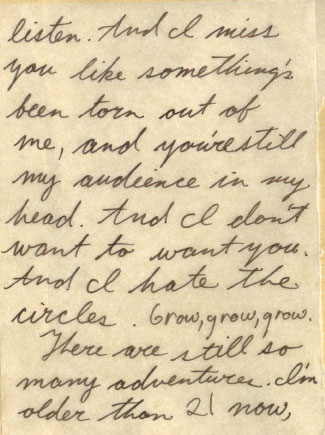 listen. And I miss
you like something's
been torn out of
me, and you're still
my audience in my
head. And I don't
want to want you.
And I hate the
circles. Grow, grow, grow.
There are still so
many adventures. I'm
older than 21 now,